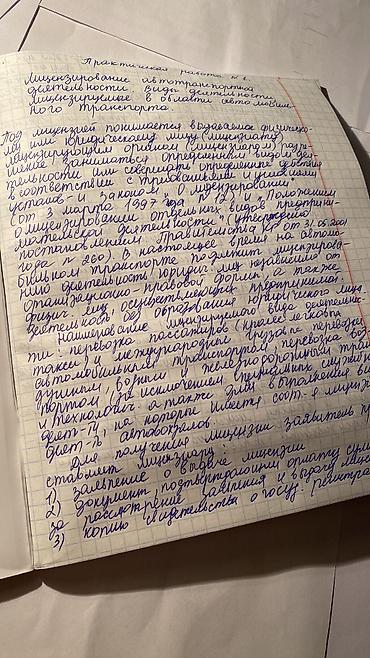 Практическая работа №1.
Лицензирование автотранспортной
деятельности. Виды деятельности
лицензируемое в области автомобиль-
ного транспорта.
Под лицензией понимается выдаваемое физическо-
му или юридическому лицу (лицензиату)
лицензирующим органом (лицензиаром) разре-
шение заниматься определенным видом дея-
тельности или совершать определенные действия
в соответствии с требованиями и условиями
установ-и законом „О лицензировании"
(от 3 марта 1997 года №12) и „Положением
о лицензировании отдельных видов предприни-
мательской деятельности" (утверждено
постановлением Правительства КР от 31.05.2001
года №260). В настоящее время на автомо-
бильном транспорте подлежит лицензирова-
нию деятельность юридич. лиц независимо от
организационно-правовой формы, а также
физич. лиц, осуществляющих предпринимат.
деятельность без образования юридического лица.
Наименование лицензируемого вида деятельнос-
ти: перевозка пассажиров (кроме легковых
такси) и международные грузовые перевозки
автомобильным транспортом, перевозка воз-
душным, водным и железнодорожным тран
портом (за исключением специальных служебных
и технологич. а также для выполнения
деят-ти, на которые имеется соот-я лицензия
деят-ть автовокзалов
Для получения лицензии заявитель пред
ставляет лицензиару:
1) заявление о выдаче лицензии
2) документ, подтверждающий оплату суммы
за рассмотрение заявления и выдачу лицен
3) копию свидетельства о госуд. регистра